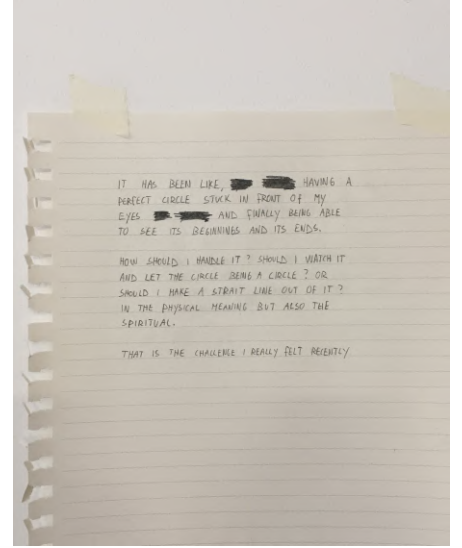 IT HAS BEEN LIKE, HAVING A
PERFECT CIRCLE STUCK IN FRONT OF MY
EYES AND FINALLY BEING ABLE
TO SEE ITS BEGINNINGS AND ITS ENDS.
HOW SHOULD I HANDLE IT? SHOULD I WATCH IT
AND LET THE CIRCLE BEING A CIRCLE? OR
SHOULD I MAKE A STRAIT LINE OUT OF IT?
IN THE PHYSICAL MEANING BUT ALSO THE
SPIRITUAL.
THAT IS THE CHALLENGE I REALLY FELT RECENTLY